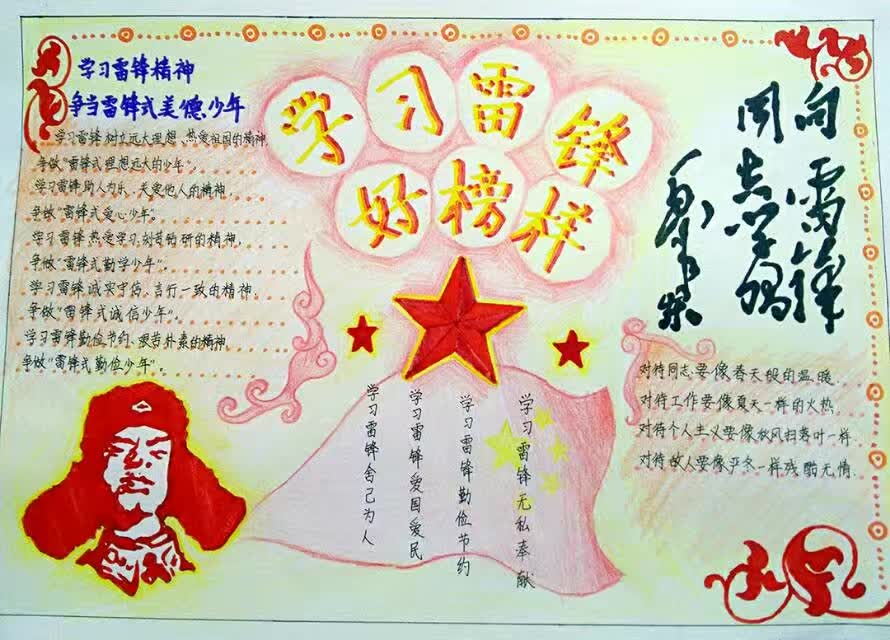 学习雷锋精神
争当雷锋式美德少年
学习雷锋树立远大理想、热爱祖国的精神,
争做“雷锋式理想远大的少年”。
学习雷锋助人为乐、关爱他人的精神,
争做“雷锋式爱心少年”。
学习雷锋热爱学习、刻苦钻研的精神,
争做“雷锋式勤学少年”。
学习雷锋诚实守信、言行一致的精神,
争做“雷锋式诚信少年”。
学习雷锋勤俭节约、艰苦朴素的精神
争做“雷锋式勤俭少年”。
学习雷锋
好榜样
向雷锋
同志学习
毛泽东
学习雷锋无私奉献
学习雷锋勤俭节约
学习雷锋爱国爱民
学习雷锋舍己为人
对待同志要像春天般的温暖
对待工作要像夏天一样的火热
对待个人主义要像秋风扫落叶一样
对待敌人要像严冬一样残酷无情